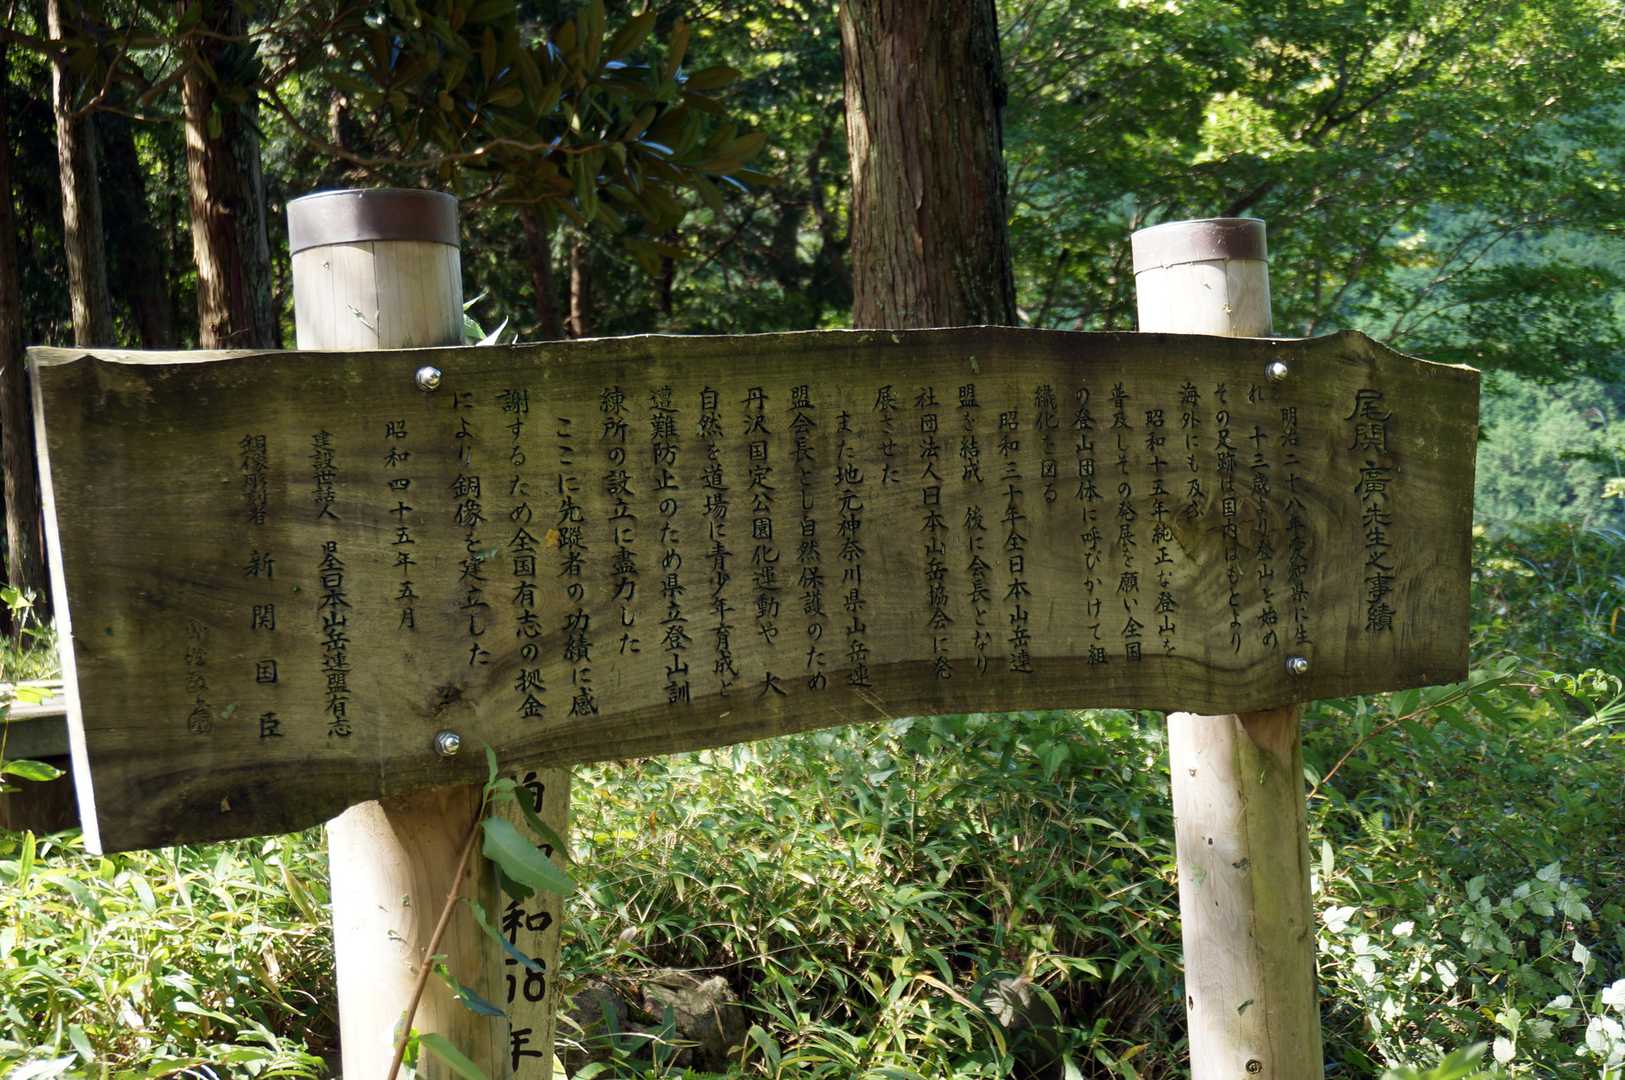 尾関廣先生之事績
明治二十八年愛知県に生
れ 十三歳より登山を始め
その足跡は国内はもとより
海外にも及ぶ
昭和十五年純正な登山を
普及しその発展を願い全国
の登山団体に呼びかけて組
織化を図る
昭和三十年全日本山岳連
盟を結成 後に会長となり
社団法人日本山岳協会に発
展させた
また地元神奈川県山岳連
盟会長とし自然保護のため
丹沢国定公園化運動や 大
自然を道場に青少年育成と
遭難防止のため県立登山訓
練所の設立に盡力した
ここに先蹤者の功績に感
謝するため全国有志の拠金
により銅像を建立した
昭和四十五年五月
建設世話人 全日本山岳連盟有志
銅像彫刻者 新関国臣
昭和58年